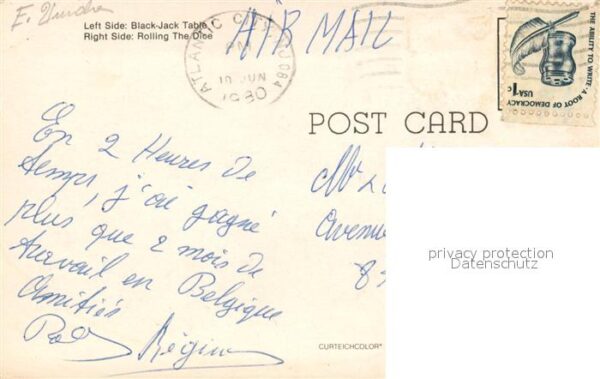 Left Side: Black-Jack Table
Right Side: Rolling The Dice
AIR MAIL
ATLANTIC CITY NJ 084
PM
10 JUN
1980
THE ABILITY TO WRITE · A ROOT OF DEMOCRACY
USA 1c
POST CARD
En 2 Heures de
temps, j'ai gagné
plus que 2 mois de
travail en Belgique
Amitiés
Régine
Mr
Avenue
privacy protection
Datenschutz
CURTEICHCOLOR®